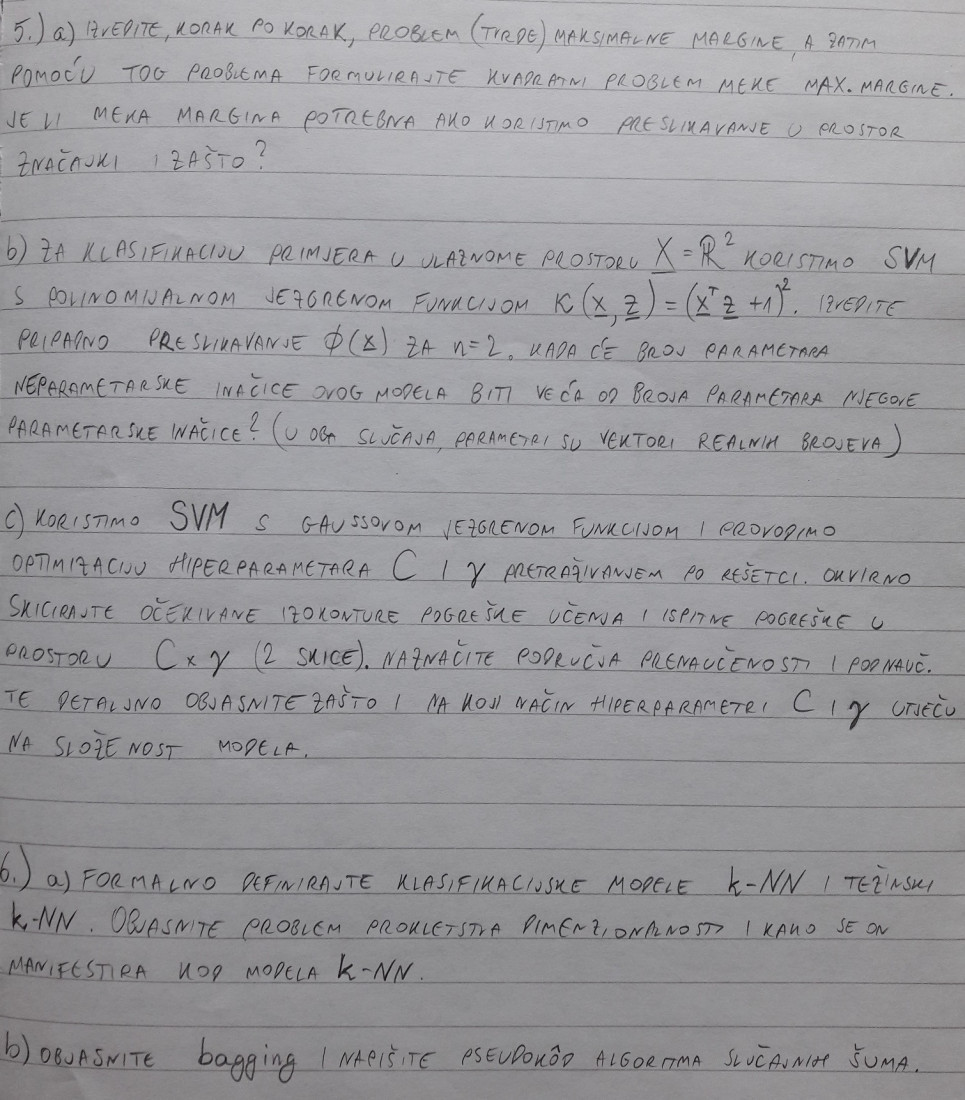 5.) a) IZVEDITE, KORAK PO KORAK, PROBLEM (TVRDE) MAKSIMALNE MARGINE, A ZATIM
POMOĆU TOG PROBLEMA FORMULIRAJTE KVADRATNI PROBLEM MEKE MAX. MARGINE.
JE LI MEKA MARGINA POTREBNA AKO KORISTIMO PRESLIKAVANJE U PROSTOR
ZNAČAJKI I ZAŠTO?
b) ZA KLASIFIKACIJU PRIMJERA U ULAZNOME PROSTORU X = ℝ² KORISTIMO SVM
S POLINOMIJALNOM JEZGRENOM FUNKCIJOM K(x, z) = (xᵀz + 1)². IZVEDITE
PRIPADNO PRESLIKAVANJE ϕ(x) ZA n=2. KADA ĆE BROJ PARAMETARA
NEPARAMETARSKE INAČICE OVOG MODELA BITI VEĆA OD BROJA PARAMETARA NJEGOVE
PARAMETARSKE INAČICE? (U OBA SLUČAJA, PARAMETRI SU VEKTORI REALNIH BROJEVA)
c) KORISTIMO SVM S GAUSSOVOM JEZGRENOM FUNKCIJOM I PROVODIMO
OPTIMIZACIJU HIPERPARAMETARA C I γ PRETRAŽIVANJEM PO REŠETCI. OKVIRNO
SKICIRAJTE OČEKIVANE IZOKONTURE POGREŠKE UČENJA I ISPITNE POGREŠKE U
PROSTORU C × γ (2 SKICE). NAZNAČITE PODRUČJA PRENAUČENOSTI I PODNAUČ.
TE DETALJNO OBJASNITE ZAŠTO I NA KOJI NAČIN HIPERPARAMETRI C I γ UTJEČU
NA SLOŽENOST MODELA.
6.) a) FORMALNO DEFINIRAJTE KLASIFIKACIJSKE MODELE k-NN I TEŽINSKI
k-NN. OBJASNITE PROBLEM PROKLETSTVA DIMENZIONALNOSTI I KAKO SE ON
MANIFESTIRA KOD MODELA k-NN.
b) OBJASNITE bagging I NAPIŠITE PSEUDOKÔD ALGORITMA SLUČAJNIH ŠUMA.